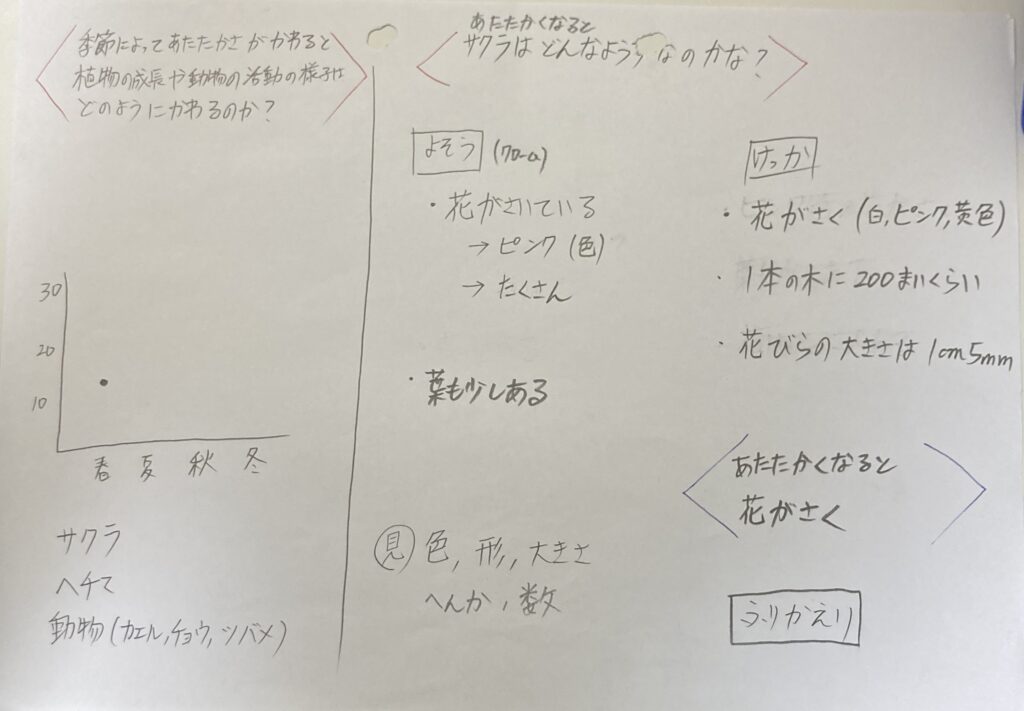 季節によってあたたかさがかわると
植物の成長や動物の活動の様子は
どのようにかわるのか?
30
20
10
春 夏 秋 冬
サクラ
ヘチマ
動物(カエル,チョウ,ツバメ)
あたたかくなると
サクラはどんなようすなのかな?
よそう (クローム)
・花がさいている
→ ピンク (色)
→ たくさん
・葉も少しある
見 色, 形, 大きさ
へんか, 数
けっか
・花がさく (白,ピンク,黄色)
・1本の木に200まいくらい
・花びらの大きさは1cm5mm
あたたかくなると
花がさく
ふりかえり